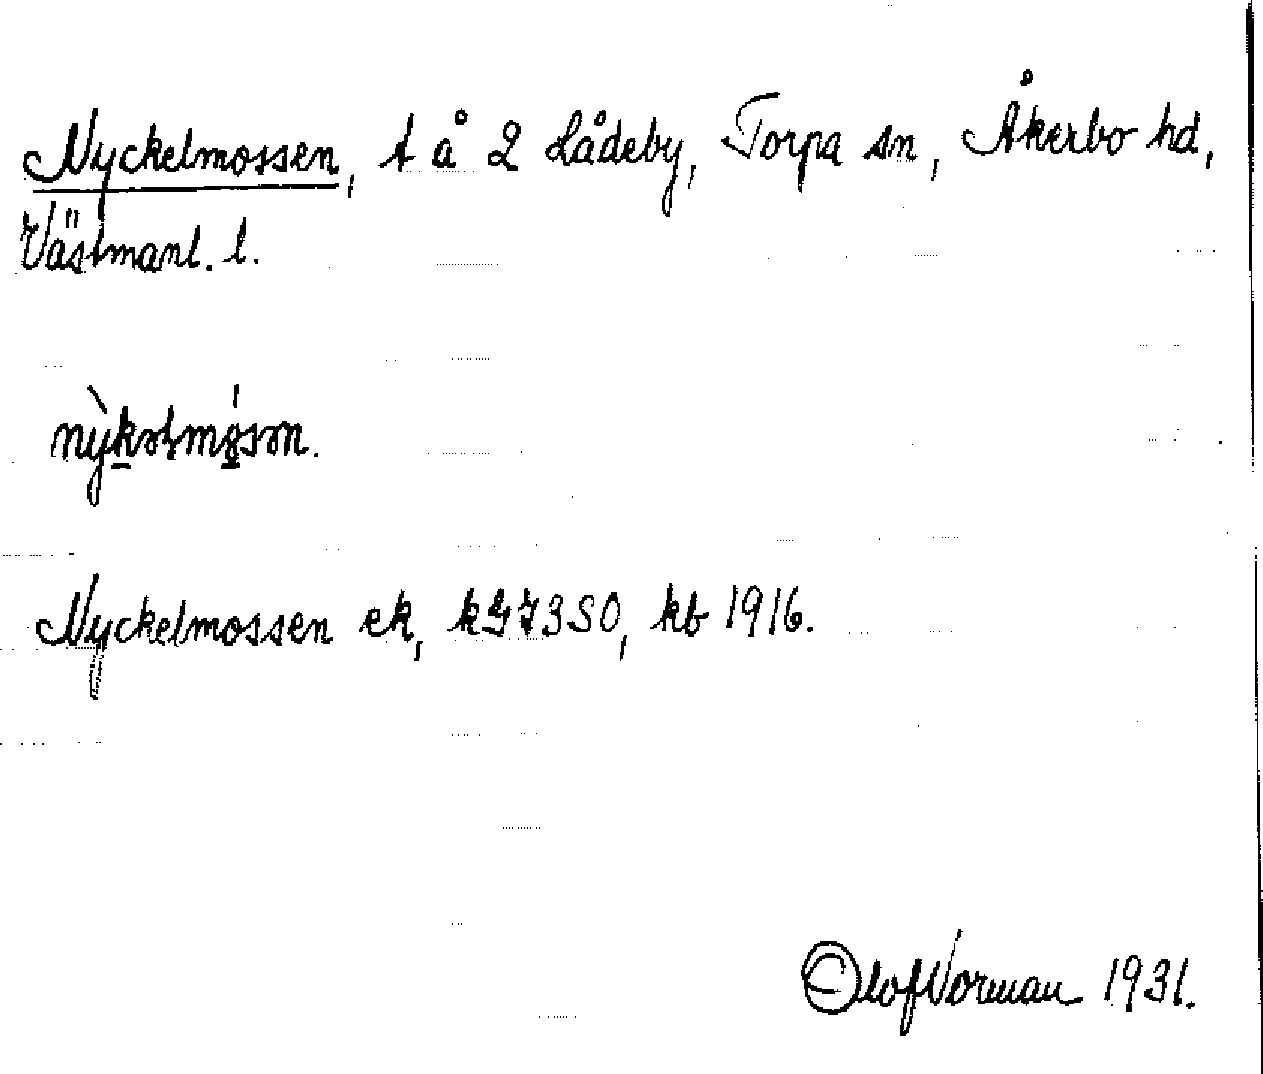 Nyckelmossen, t å 2 Lådeby, Torpa sn, Åkerbo hd,
Västmanl. l.
Nyckelmossen ek, kGJ3SO, kb 1916.
Olof Norman 1931.